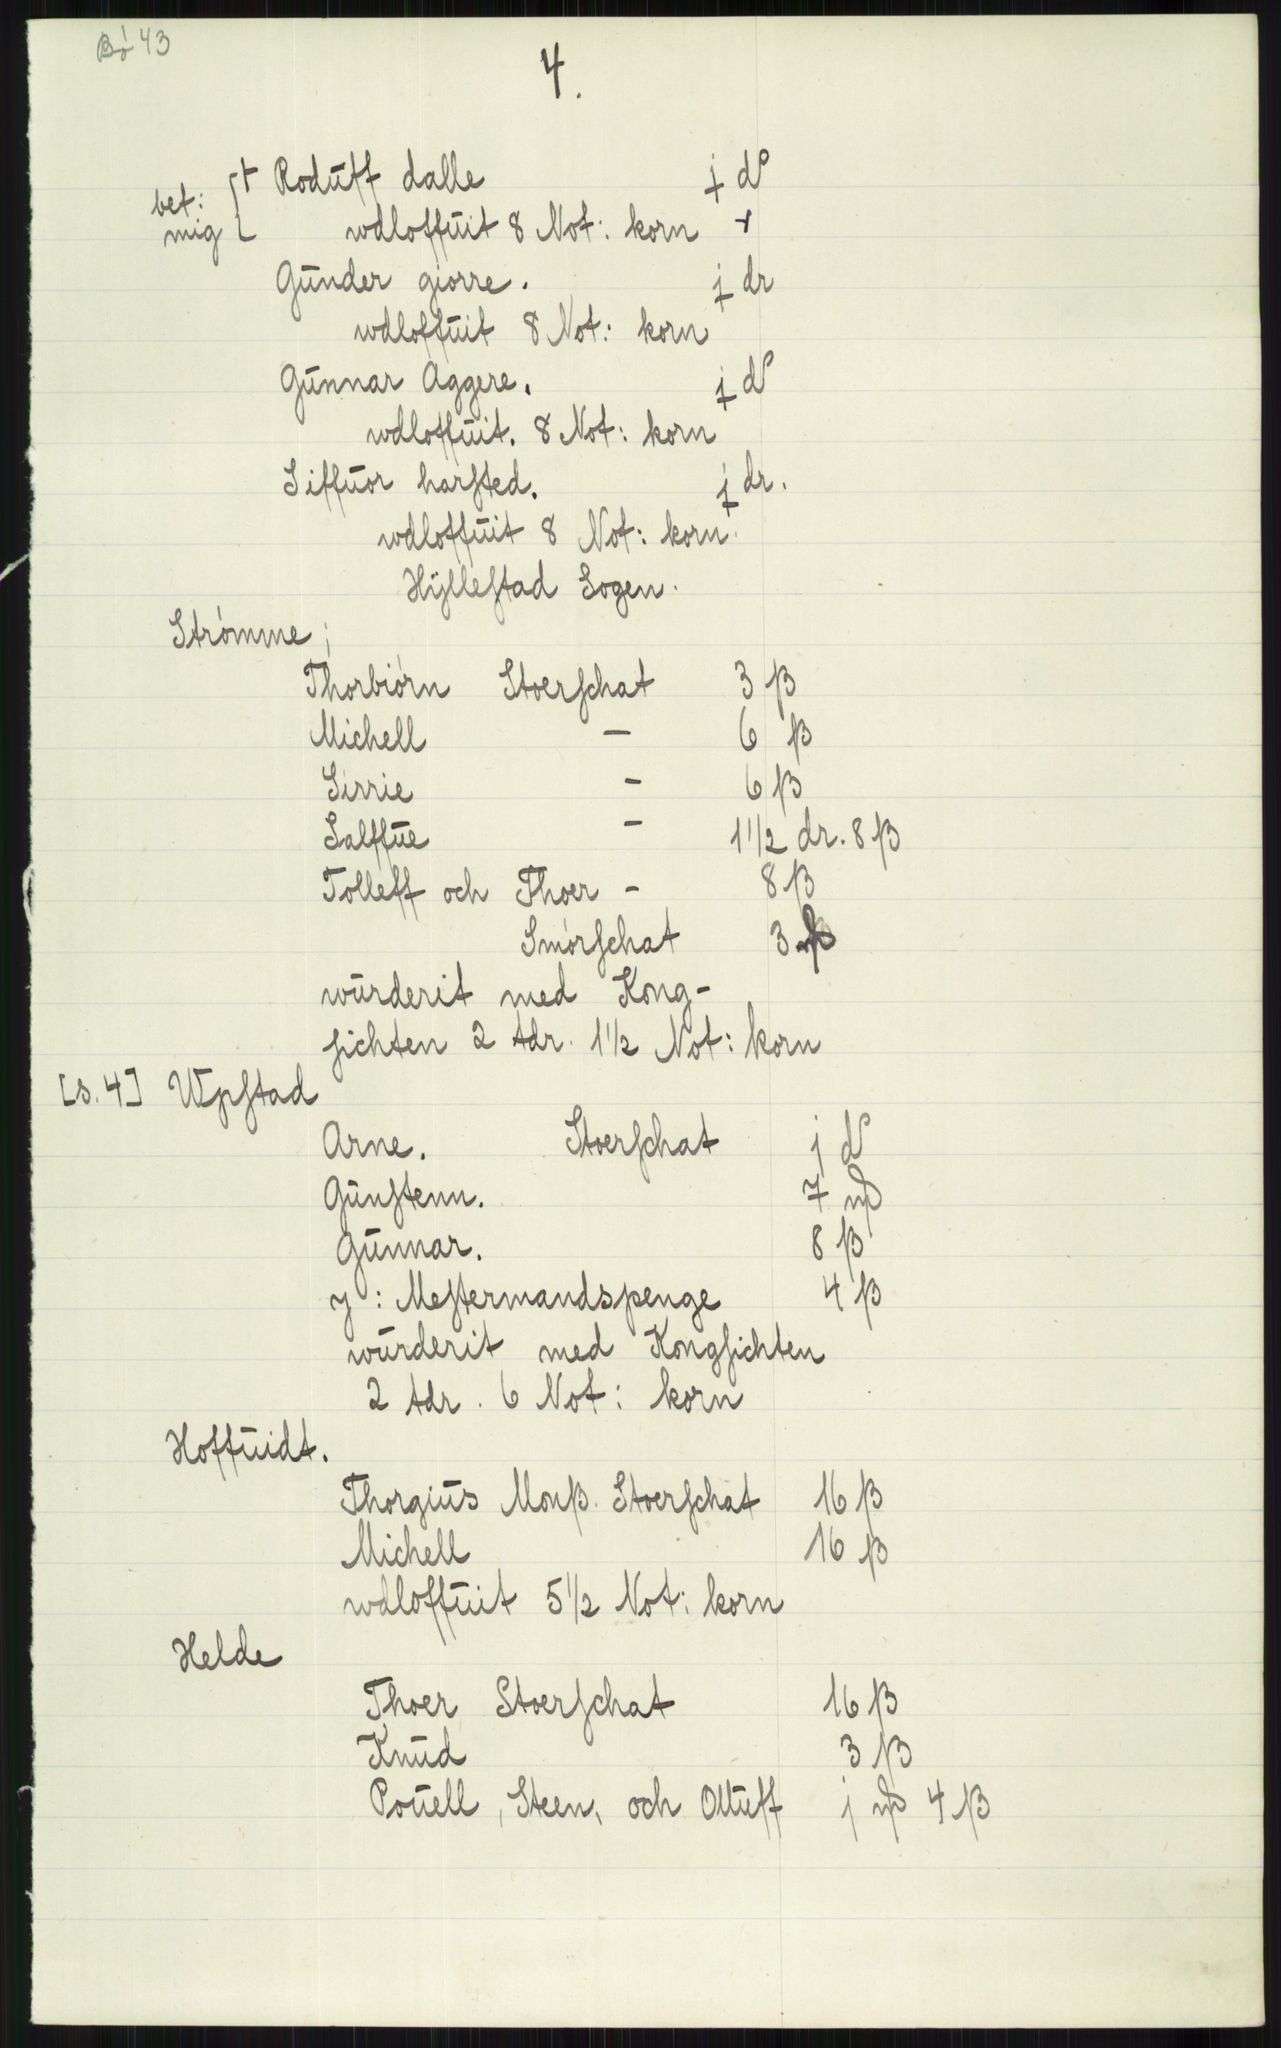 Bø 43
4.
bet: mig { † Roduff dalle j dr
wdloffuit 8 Not: korn
Gunder giorre. j dr
wdloffuit 8 Not: korn
Gunnar Aggere. j dr
wdloffuit. 8 Not: korn
Siffuor harsted. j dr.
wdloffuit 8 Not: korn.
Hÿllestad Sogen.
Strømme;
Thorbiørn Stoerschat 3 ß
Michell — 6 ß
Sirrie — 6 ß
Salffue — 1 1/2 dr. 8 ß
Tolleff och Thoer — 8 ß
Smørschat 3
wurderit med Kong-
sichten 2 tdr. 1 1/2 Not: korn
[s. 4] Wpstad
Arne. Stoerschat j dr
Gunstenn. 7 mß
Gunnar. 8 ß
J: Mestermandspenge 4 ß
wurderit med Kongsichten
2 tdr. 6 Not: korn
Hoffuidt.
Thorgius Monß. Stoerschat 16 ß
Michell 16 ß
wdloffuit 5 1/2 Not: korn
Helde
Thoer Stoerschat 16 ß
Knud 3 ß
Pouell, Steen, och Olluff j mß 4 ß